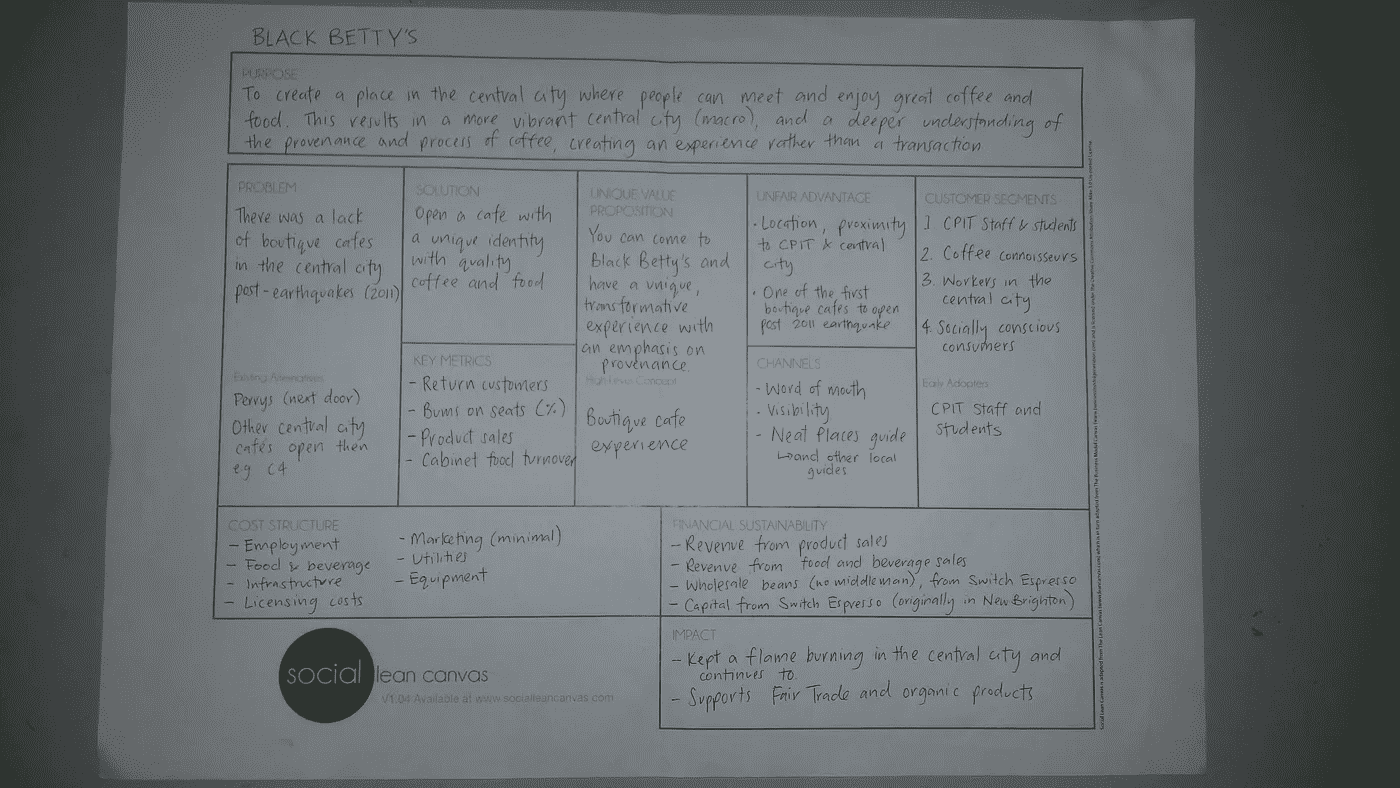 BLACK BETTY'S
PURPOSE
To create a place in the central city where people can meet and enjoy great coffee and
food. This results in a more vibrant central city (macro), and a deeper understanding of
the provenance and process of coffee, creating an experience rather than a transaction
PROBLEM
There was a lack
of boutique cafes
in the central city
post-earthquakes (2011)
Existing Alternatives
Perrys (next door)
Other central city
cafés open then
eg C4
SOLUTION
Open a cafe with
a unique identity
with quality
coffee and food
KEY METRICS
- Return customers
- Bums on seats (%)
- Product sales
- Cabinet food turnover
UNIQUE VALUE
PROPOSITION
You can come to
Black Betty's and
have a unique,
transformative
experience with
an emphasis on
provenance.
High-Level Concept
Boutique cafe
experience
UNFAIR ADVANTAGE
· Location, proximity
to CPIT & central
city
· One of the first
boutique cafes to open
post 2011 earthquake
CHANNELS
- Word of mouth
- Visibility
- Neat Places guide
↳ and other local
guides
CUSTOMER SEGMENTS
1 CPIT Staff & students
2. Coffee connoisseurs
3. Workers in the
central city
4. Socially conscious
consumers
Early Adopters
CPIT Staff and
students
COST STRUCTURE
- Employment
- Food & beverage
- Infrastructure
- Licensing costs
- Marketing (minimal)
- Utilities
- Equipment
FINANCIAL SUSTAINABILITY
- Revenue from product sales
- Revenue from food and beverage sales
- Wholesale beans (no middleman), from Switch Espresso
- Capital from Switch Espresso (originally in New Brighton)
IMPACT
- Kept a flame burning in the central city and
continues to.
- Supports Fair Trade and organic products
social lean canvas
V1.04 Available at www.socialleancanvas.com